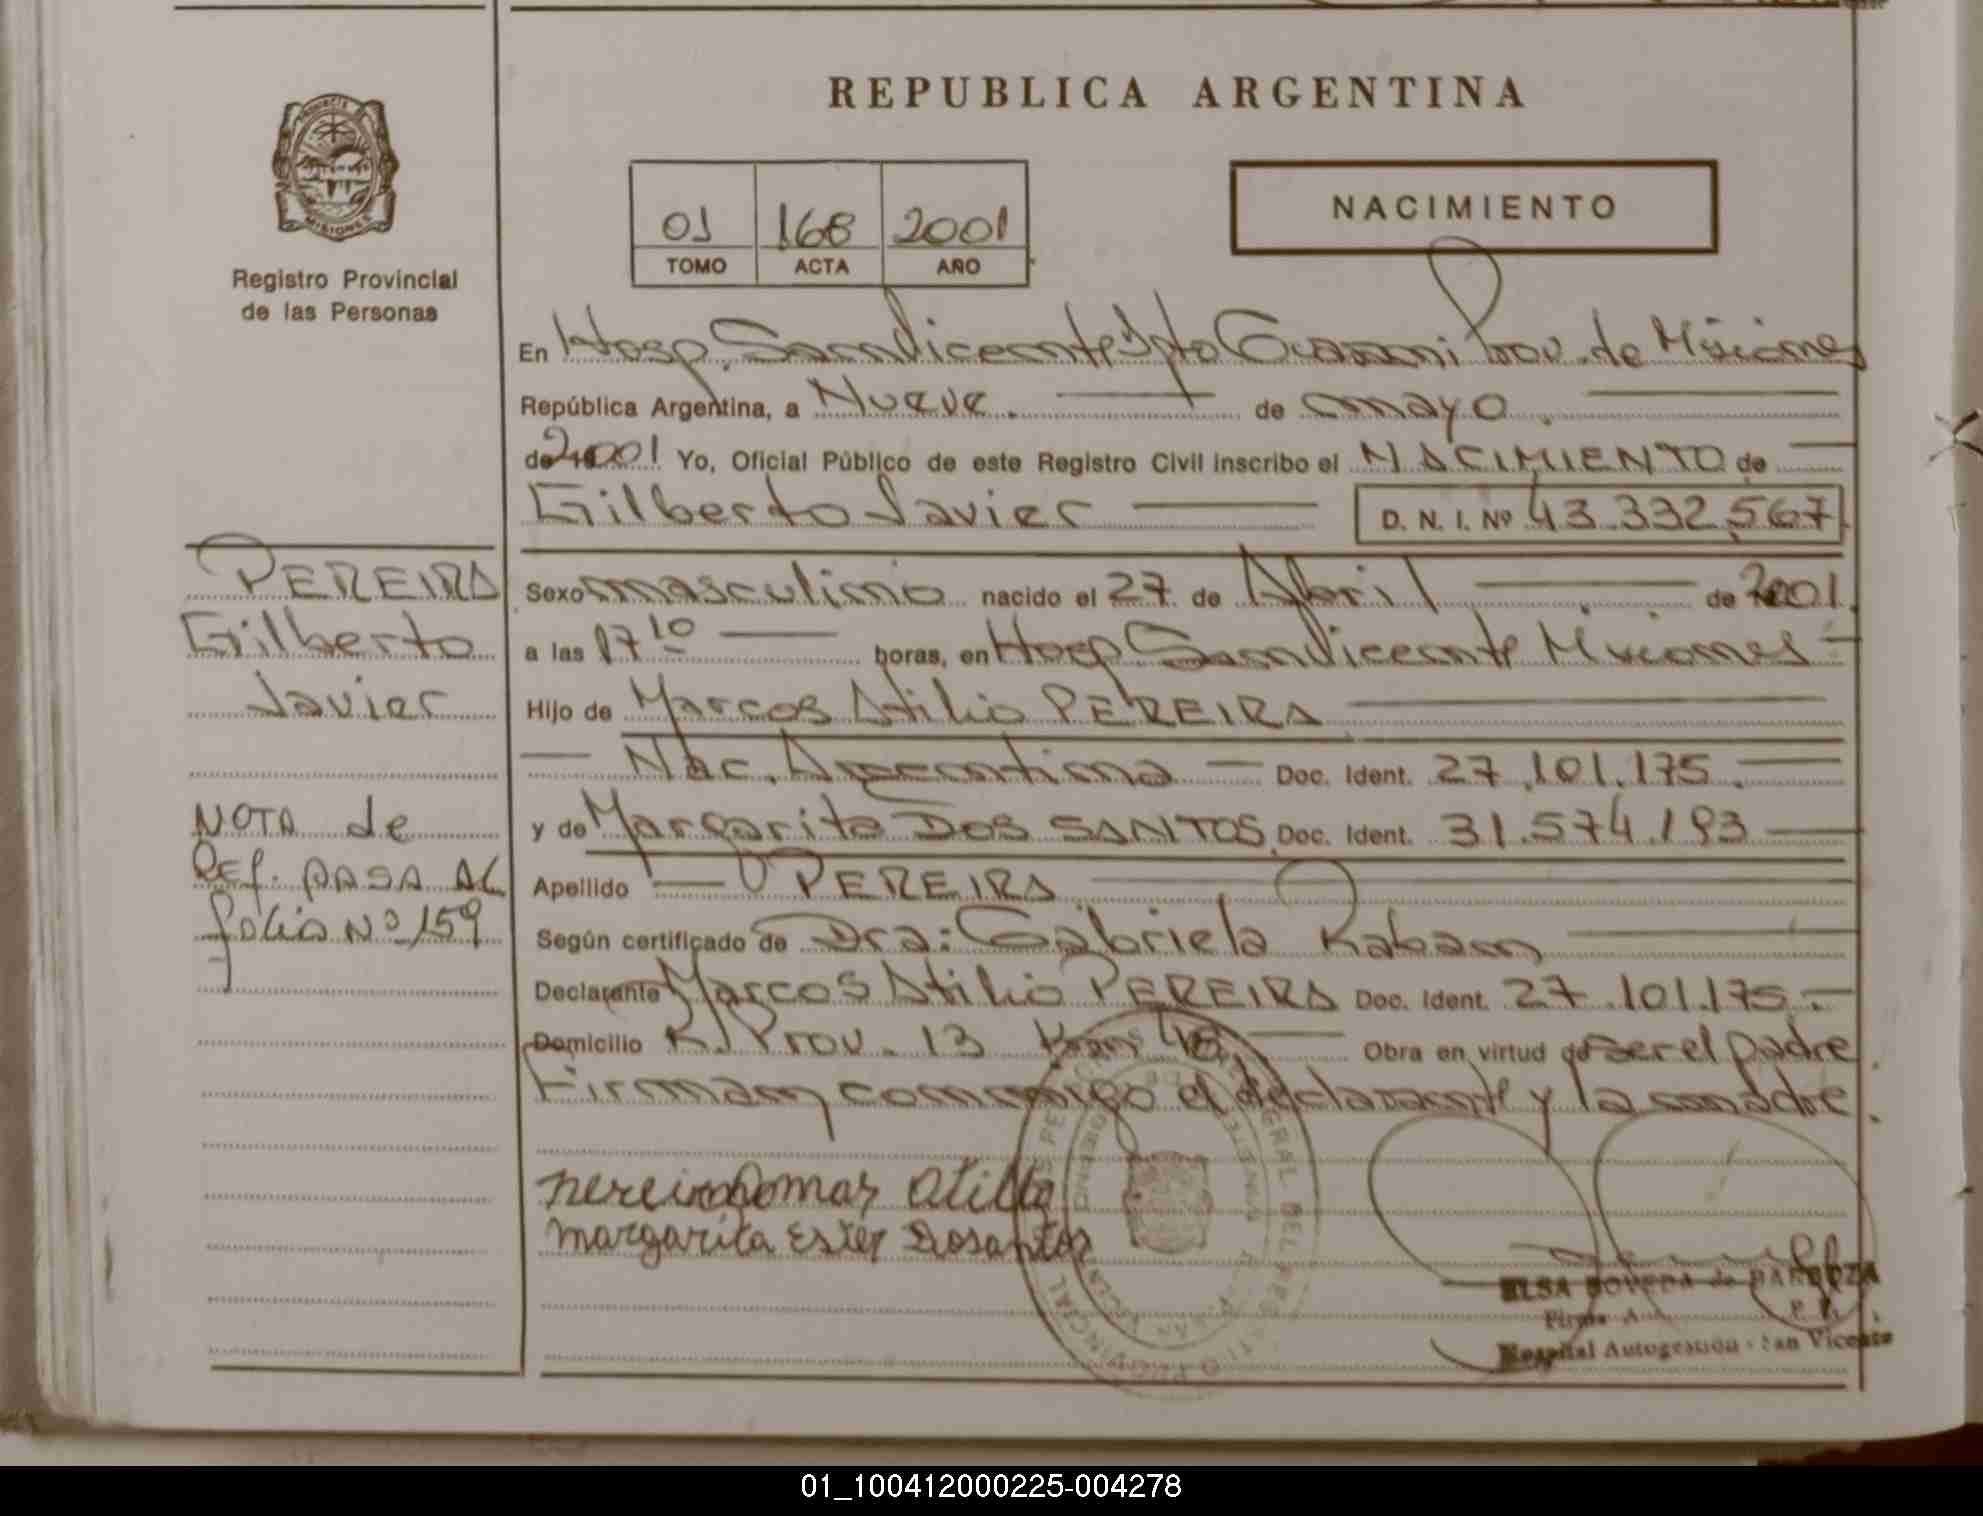 REPUBLICA ARGENTINA
PROVINCIA DE
MISIONES
Registro Provincial
de las Personas
01 168 2001
TOMO ACTA AÑO
NACIMIENTO
En Hosp. San Vicente Dpto Guarani Prov. de Misiones
República Argentina, a Nueve. de mayo.
de 2001 Yo, Oficial Público de este Registro Civil inscribo el NACIMIENTO de
Gilberto Javier D. N. I. Nº 43.332.567
PEREIRA
Gilberto
Javier
NOTA de
Ref. PASA AL
folio Nº 159
Sexo masculino nacido el 27 de Abril de 2001.
a las 17 10 horas, en Hosp San Vicente Misiones
Hijo de Marcos Atilio PEREIRA
Nac. Argentina Doc. Ident. 27.101.175.
y de Margarita DOS SANTOS. Doc. Ident. 31.574.193
Apellido PEREIRA
Según certificado de Dra: Gabriela
Declarante Marcos Atilio PEREIRA Doc. Ident. 27.101.175.
Domicilio R. Prov. 13 Km Obra en virtud de ser el padre.
Firman conmigo el declarante y la madre.
Atilio
margarita Ester Dosantos
ELSA BOVEDA de
Hospital Autogestión - San Vicente
01_100412000225-004278